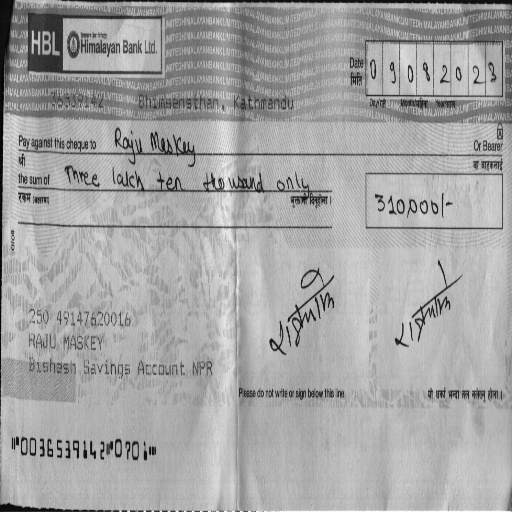 HBL Himalayan Bank Ltd.
Date 09082023
मिति
36539142 Bhimsensthan, Kathmandu
Pay against this cheque to Raju Maskey Or Bearer
श्री वा वाहकलाई
the sum of Three lakh ten thousand only 310,000/-
रकम (अक्षरमा)
250 49147620016
RAJU MASKEY
Bishesh Savings Account NPR
Please do not write or sign below this line
⑈0036539142⑈0701⑈